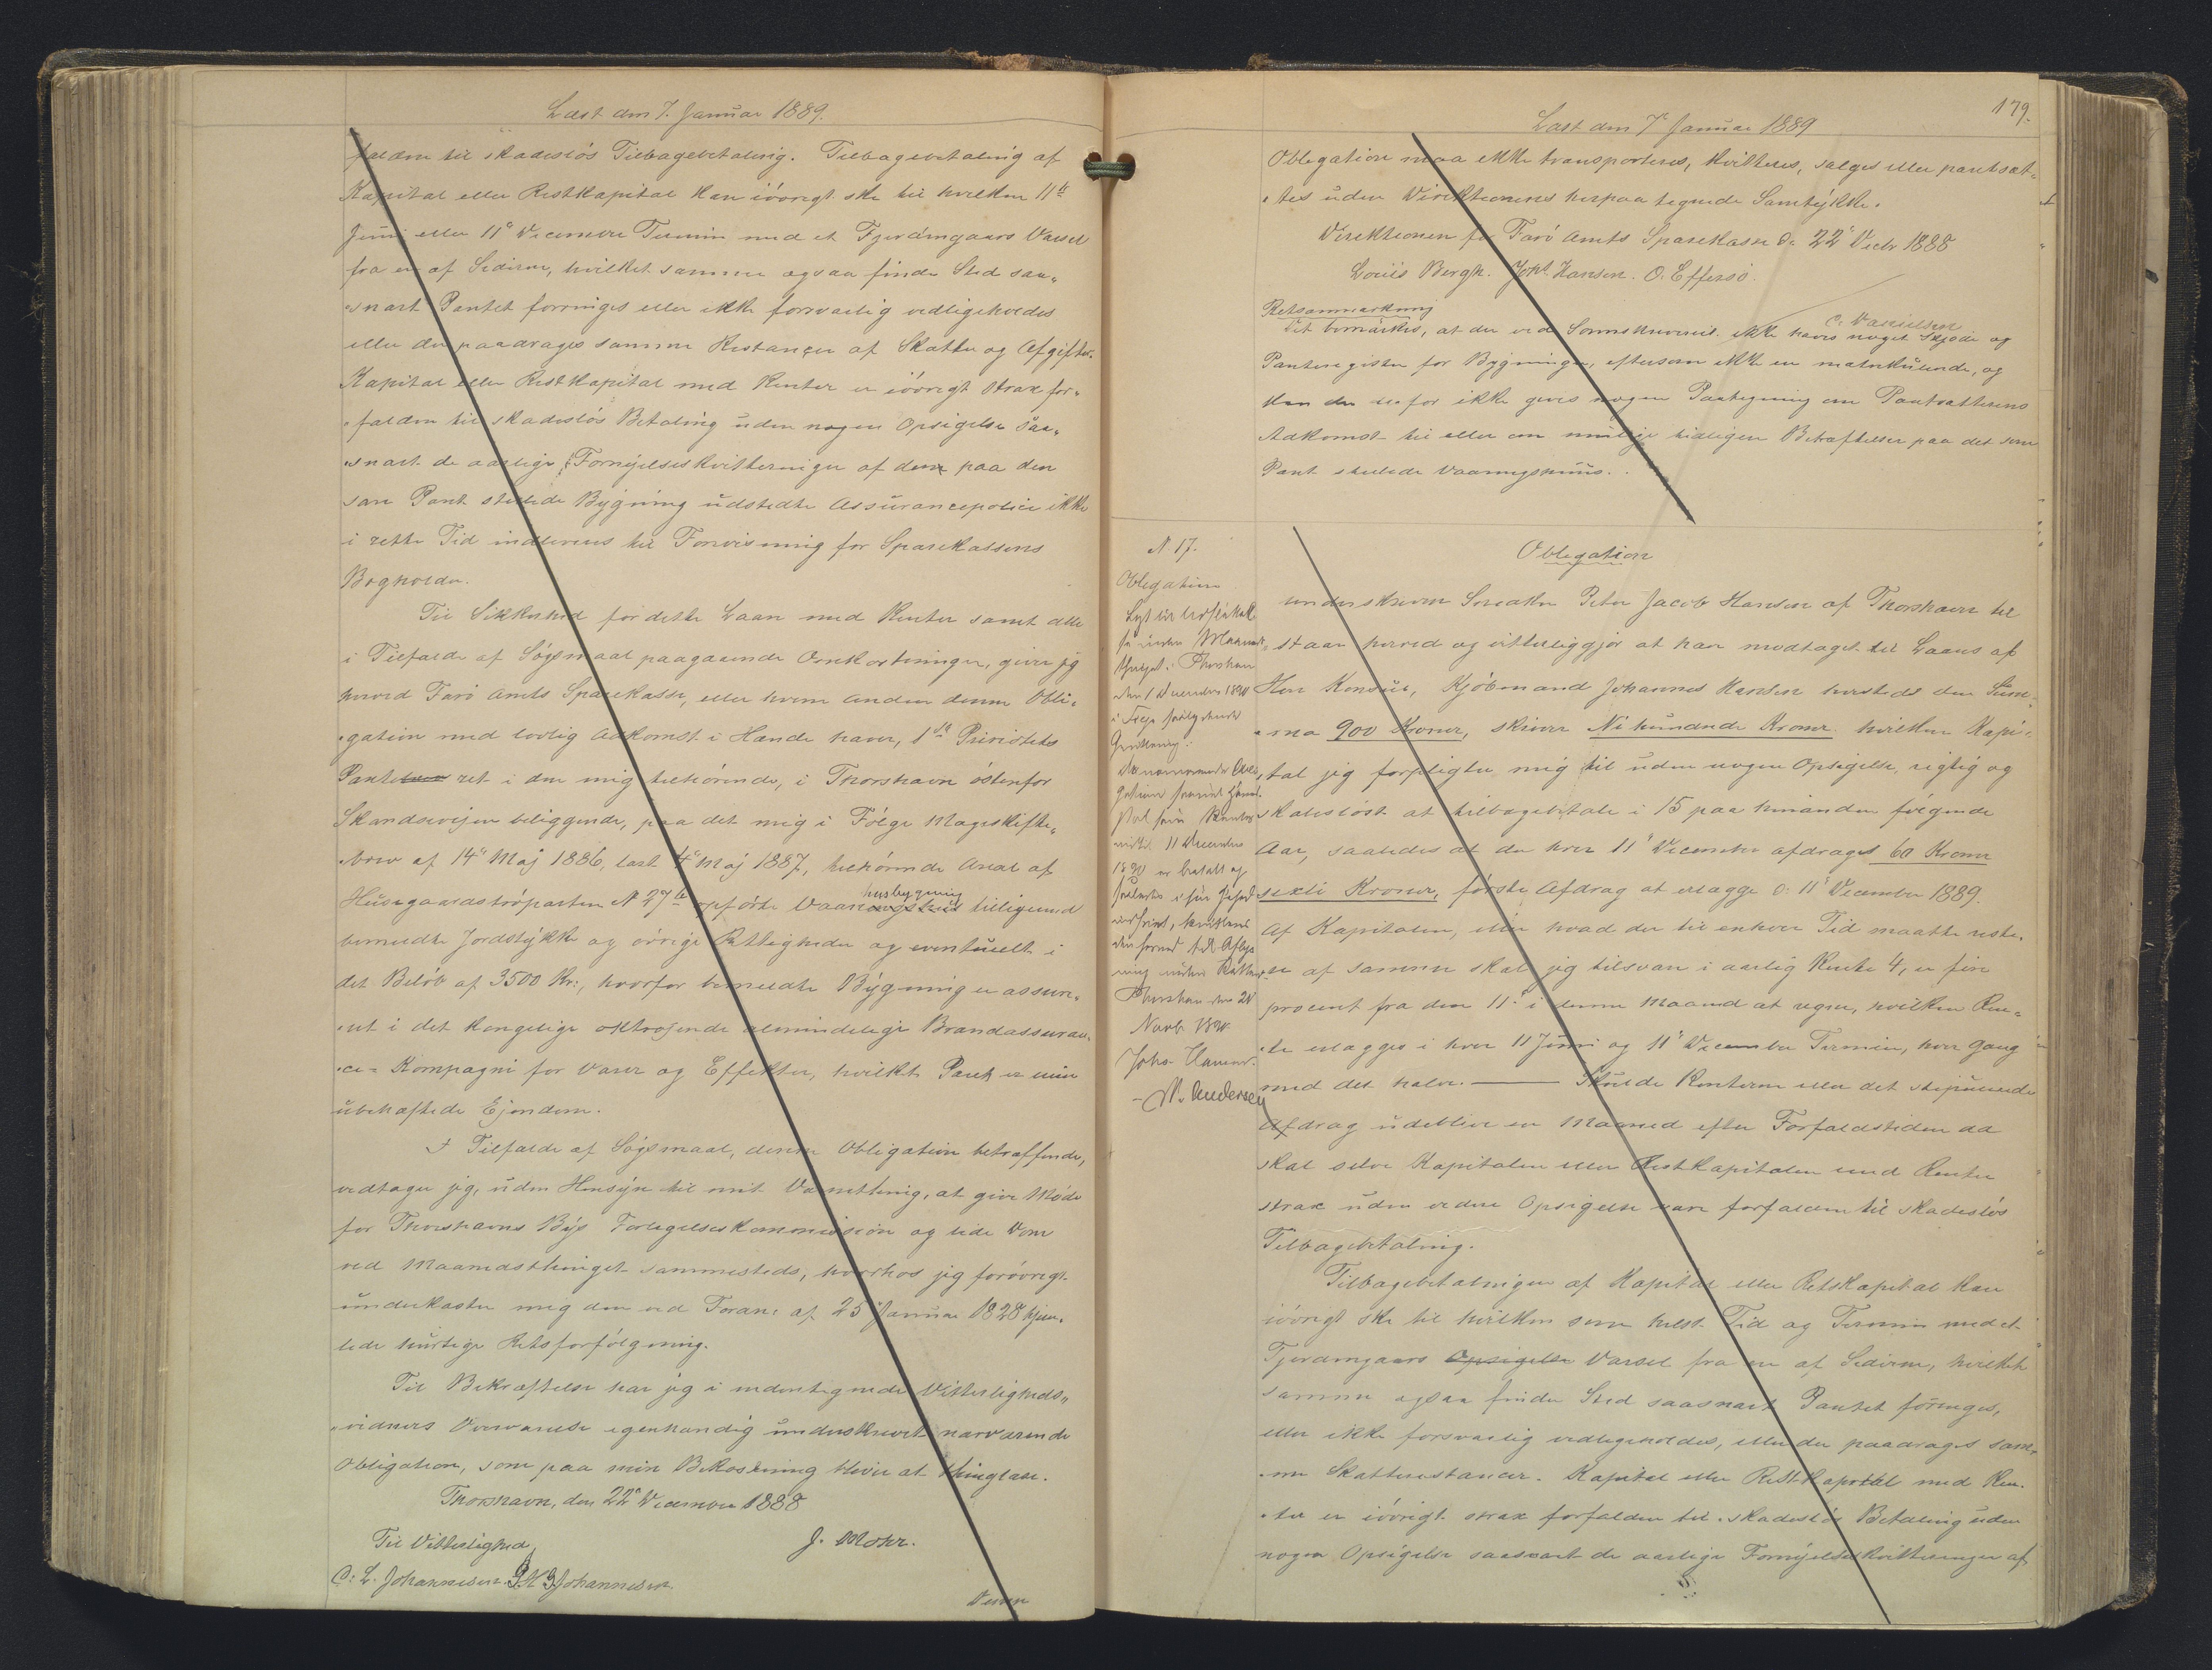 Læst den 7. Januar 1889.
falden til skadeslös Tilbagebetaling. Tilbagebetaling af
Kapital eller Restkapital kan iövrigt ske til hvilken 11te
Juni eller 11te December Termin med et Fjerdingaars Varsel
fra en af Siderne, hvilket samme ogsaa finder Sted saa-
snart Pantet forringes eller ikke forsvarlig vedligeholdes
eller der paadrages samme Restancer af Skatter og Afgifter.
Kapital eller Restkapital med Renter er iövrigt strax for-
falden til skadeslös Betaling uden nogen Opsigelse saa-
snart de aarlige Fornyelseskvitteringer af den paa den
som Pant stillede Bygning udstedte Assurancepolice ikke
i rette Tid indleveres til Forevisning for Sparekassens
Bogholder.
Til Sikkerhed for dette Laan med Renter samt alle
i Tilfælde af Sögsmaal paagaaende Omkostninger, giver jeg
herved Farö Amts Sparekasse, eller hvem anden denne Obli-
gation med lovlig Adkomst i Hænde haver, 1ste Prioritets
Panteret i den mig tilhörende, i Thorshavn östenfor
Skandsevejen beliggende, paa det mig i Fölge Mageskifte-
brev af 14de Maj 1886, læst 4de Maj 1887, tilhörende Areal af
Husegaardstörparten N 27 opförte Vaaningshus husbygning tilligemed
bemeldte Jordstykke og övrige Rettigheder og eventuelt i
det Belöb af 3500 Kr:, hvorfor bemeldte Bygning er assure-
ret i det kongelige oktrojerede almindelige Brandassuran-
ce-Kompagni for Varer og Effekter, hvilket Pant er min
ubehæftede Ejendom.
I Tilfælde af Sögsmaal, denne Obligation betræffende,
vedtager jeg, uden Hensyn til mit Værnething, at give Möde
for Thorshavns Bys Forligelseskommission og lide Dom
ved Maanedsthinget sammesteds, hvorhos jeg forövrigt
underkaster mig den ved Foran: af 25 Januar 1828 hjem-
lede hurtige Retsforfölgning.
Til Bekræftelse har jeg i medentegnede Vitterligheds-
vidners Overværelse egenhændig underskrevet nærværende
Obligation, som paa min Bekostning bliver at thinglæse.
Thorshavn, den 22de December 1888
Til Vitterlighed J. Mohr.
C: L. Johannesen. Johannesen.
Denne
179.
Læst den 7de Januar 1889
Obligation maa ikke transporteres, kvitteres, sælges eller pantsæt-
tes uden Direktionens herpaa tegnede Samtykke.
Direktionen for Farö Amts Sparekasse d: 22de Decbr 1888
Louis Bergh. Johs Hansen. O. Effersö.
Retsanmærkning
Det bemærkes, at der ved Sorenskriveriet ikke haves noget Skjöde og
Panteregister for Bygninger, eftersom ikke er matrikulerede, og
kan der derfor ikke gives nogen Paategning om Pantsætterens
Adkomst til eller om mulige tidligere Behæftelser paa det som
Pant stillede Vaaningshuus.
C. Danielsen
N 17.
Obligation
Lyst til Udslettelse
den 1 December 1890
December
1890 er betalt og
Thorshavn den 28
Novb. 1890
Johs Hansen.
M. Andersen
Obligation
Underskreven Snedker Peter Jacob Hansen af Thorshavn til
staar herved og vitterliggjör at have modtaget til Laans af
Herr Konsul, Kjöbmand Johannes Hansen hersteds den Sum-
ma 900 Kroner, skriver Ni hundrede Kroner hvilken Kapi-
tal jeg forpligter mig til uden nogen Opsigelse, rigtig og
skadeslöst at tilbagebetale i 15 paa hinanden fölgende
Aar, saaledes at der hver 11te December afdrages 60 Kroner
sexti Kroner, förste Afdrag at erlægge d: 11te December 1889.
Af Kapitalen, eller hvad der til enhver Tid maatte reste-
re af samme skal jeg tilsvare i aarlig Rente 4, er fire
procent fra den 11te i denne Maaned at regne, hvilken Ren-
te erlægges i hver 11 Juni og 11te December Termin, hver Gang
med det halve. Skulde Renterne eller det stipulerede
Afdrag udeblive en Maaned efter Forfaldstiden da
skal selve Kapitalen eller Restkapitalen med Renter
strax uden videre Opsigelse være forfalden til skadeslös
Tilbagebetaling.
Tilbagebetalingen af Kapital eller Restkapital kan
iövrigt ske til hvilken som helst Tid og Termin med et
Fjerdingaars Opsigelse Varsel fra en af Siderne, hvilket
samme ogsaa finder Sted saasnart Pantet forringes,
eller ikke forsvarlig vedligeholdes, eller der paadrages sam-
me Skatterestancer. Kapital eller Restkapital med Ren-
ter er iövrigt strax forfalden til skadeslös Betaling uden
nogen Opsigelse saasnart de aarlige Fornyelseskvitteringer af